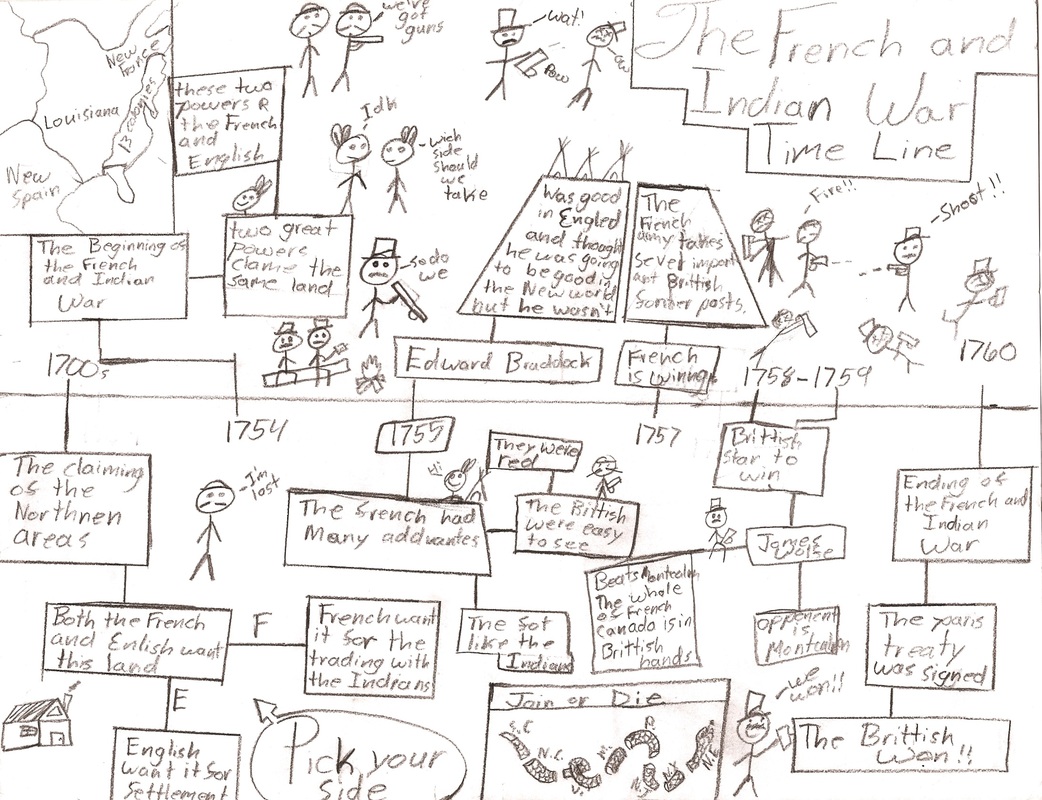 The French and
Indian War
Time Line
we've
got
guns
wat!
Pow
ow
New
France
Louisiana
13 colonies
New
Spain
these two
powers R
the French
and
English
Idk
wich
side
should
we
take
The Beginning of
the French
and Indian
War
two great
powers
clame the
same land
so do
we
Was good
in Engled
and thought
he was going
to be good in
the New world
but he wasn't
The
French
army takes
sever import
ant Brittish
former posts.
Fire!!
Shoot!!
Edward Braddock
French
is winng
1700s
1754
1755
1757
1758-1759
1760
The claiming
of the
Northnen
areas
I'm
lost
Hi
The french had
Many addvantes
They were
red
The Bittish
were easy
to see
Brittish
star to
win
James
Wolfe
Ending of
the French and
Indian
War
Both the French
and Enlish want
this land
F
French want
it for the
trading with
the Indians
The fot
like the
Indians
Beats Montcalm
The whole
of French
Canada is in
Brittish
hands
oppenent
is
Montcalm
The paris
treaty
was signed
E
English
want it for
settlement
Pick your
side
Join or Die
S.C
N.C.
V.
M.
P.
N.J
N.Y
N.E
we
won!!
The Brittish
Won!!